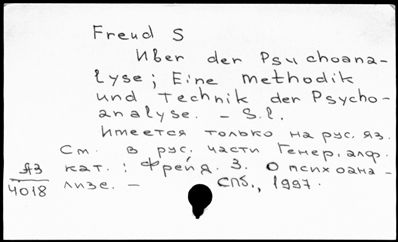 Freud S
Über der Psychoana-
lyse; Eine methodik
und Technik der Psycho-
analyse. - S.l.
Имеется только на рус. яз.
См. в рус. части Генер. алф.
Я3 кат.: Фрейд. З. О психоана-
4018 лизе. - СПб., 1997.